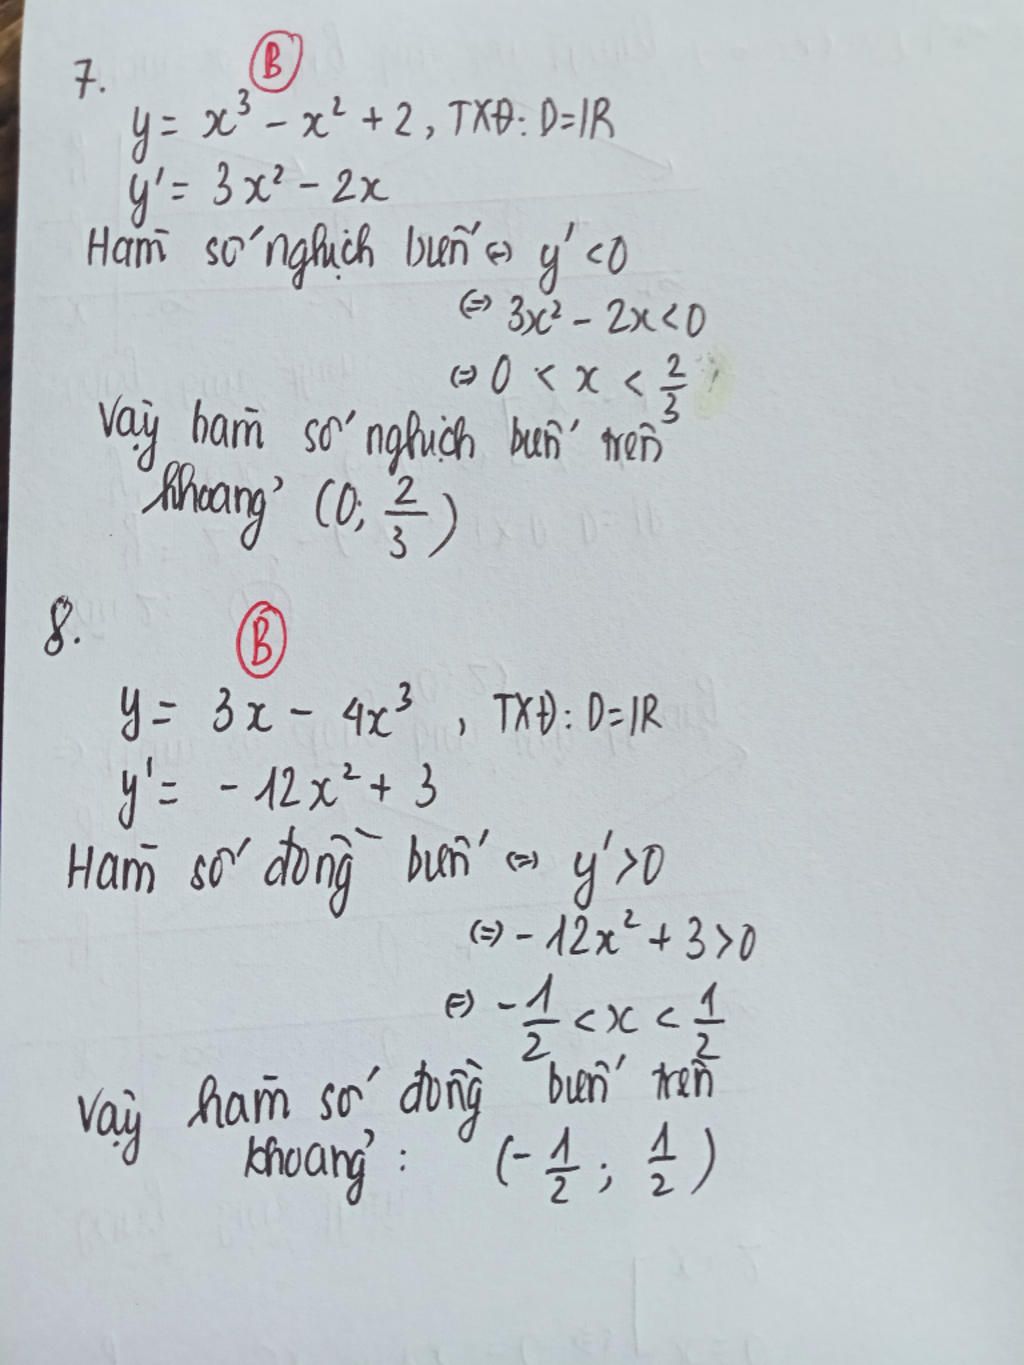 7.
B
y = x³ - x² + 2, TXĐ: D=IR
y' = 3x² - 2x
Hàm số nghịch biến ⇔ y' < 0
⇔ 3x² - 2x < 0
⇔ 0 < x < 2/3
Vậy hàm số nghịch biến trên
khoảng (0; 2/3)
8.
B
y = 3x - 4x³, TXĐ: D=IR
y' = - 12x² + 3
Hàm số đồng biến ⇔ y' > 0
⇔ - 12x² + 3 > 0
⇔ - 1/2 < x < 1/2
Vậy hàm số đồng biến trên
khoảng: (- 1/2; 1/2)